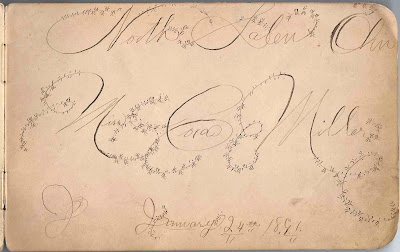 North Salem Ohio
Miss Cora Miller
January 24th 1881.